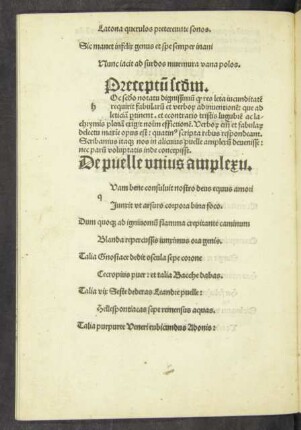 Latona querulos pretereunte sonos.
Sic manet infelix genus et spe semper inani
Nunc iacit ad surdos murmura vana polos.
Preceptũ scðm.
h
Oc scðo notatu dignissimũ qp res leta iucunditatẽ
requirit fabularũ et verboꝝ ab inuentione: que ad
leticiã ptinent. et econtrario tristis lugubrẽ ac la
chrymis plenã exigit nominũ effectionẽ. Verboꝝ em̃ et fabulaꝝ
delectu maxio opus est: quatinꝰ scripta rebus respondeant.
Scribamus itaqꝫ nos in alicuius puelle amplexũ deuenisse:
nec parũ voluptatis inde concepisse.
De puelle vnius amplexu.
q
Uam bene consuluit nostro deus equus amori
Junxit vt arsuris corpora bina foco.
Dum quoqꝫ ad igniuomũ flamma crepitante caminum
Blanda repercussis iungimus ora genis.
Talia Gnosiace dedit oscula sepe corone
Cecropius puer: et talia Bacche dabas.
Talia vix Seste dederas Leandre puelle:
Hellespontiacas sepe remensus aquas.
Talia purpuree Veneri rubicundus Adonis: